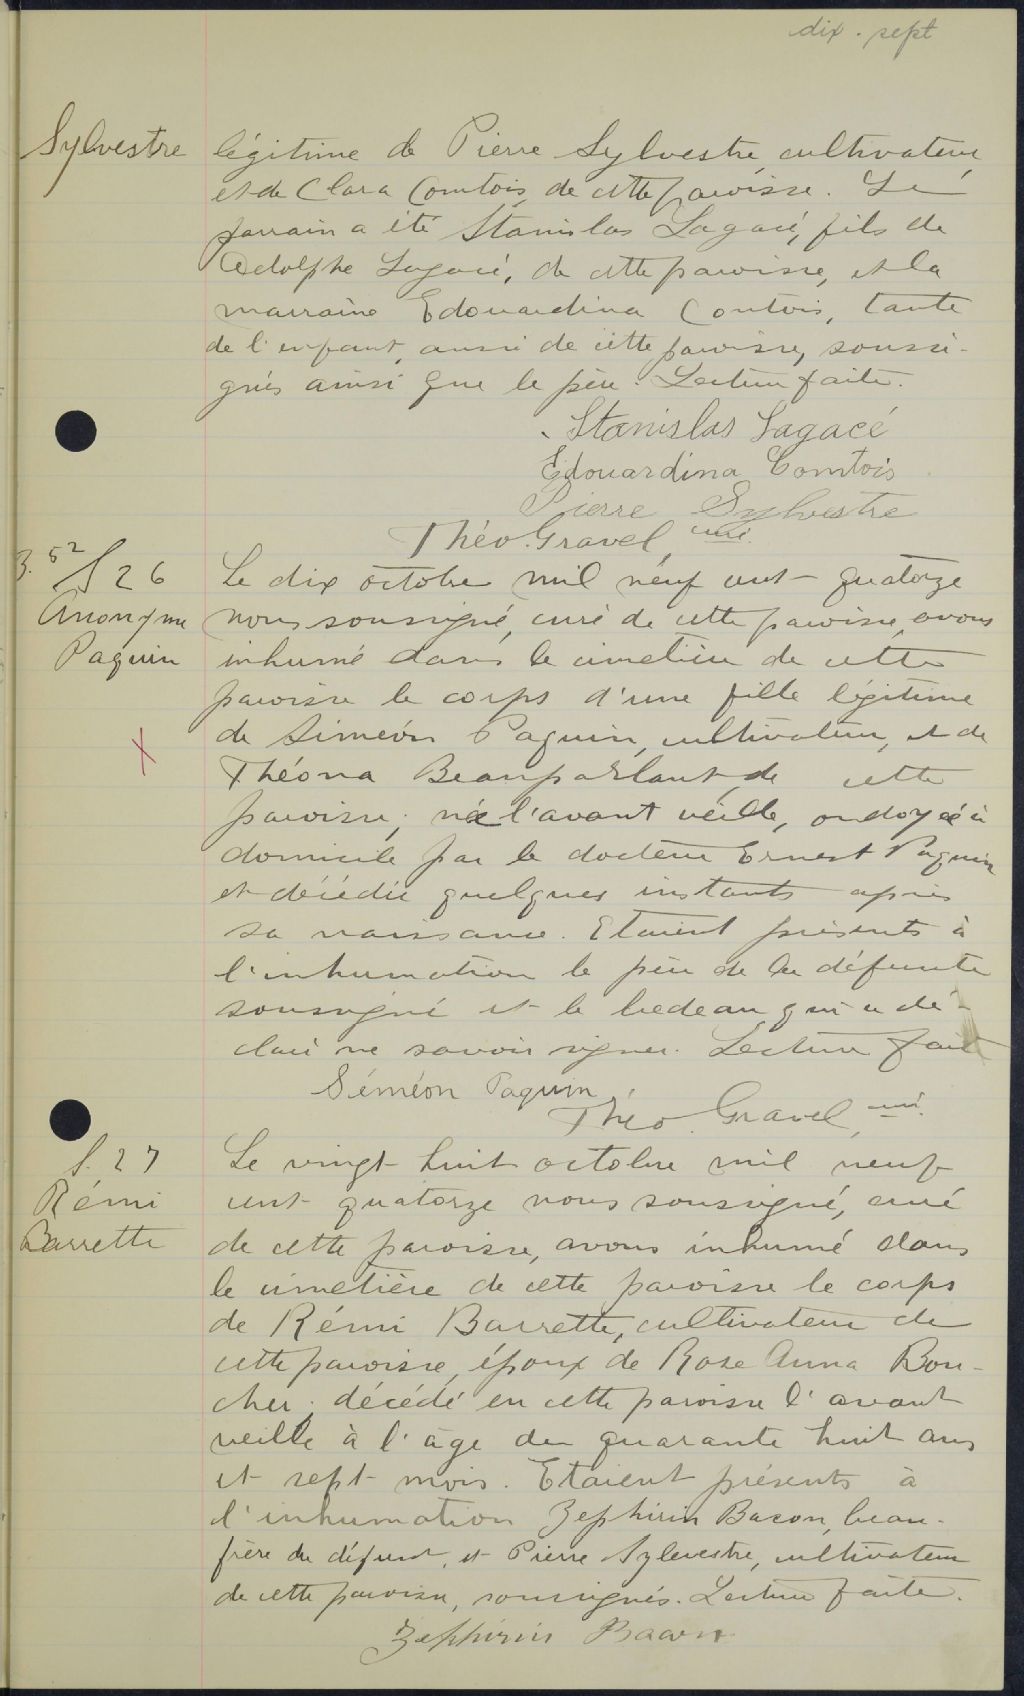 dix. sept
Sylvestre
légitime de Pierre Sylvestre, cultivateur,
et de Clara Comtois, de cette paroisse. Le
parrain a été Stanislas Lagacé, fils de
Adolphe Lagacé, de cette paroisse, et la
marraine Edouardina Comtois, tante
de l'enfant, aussi de cette paroisse, soussi-
gnés ainsi que le père. Lecture faite.
Stanislas Lagacé
Edouardina Comtois
Pierre Sylvestre
Théo. Gravel, curé.
3. 52
S 26
Anonyme
Paquin
Le dix octobre mil neuf cent quatorze
nous soussigné, curé de cette paroisse, avons
inhumé dans le cimetière de cette
paroisse le corps d'une fille légitime
de Siméon Paquin, cultivateur, et de
Théona Beauparlant, de cette
paroisse; née l'avant veille, ondoyée à
domicile par le docteur Ernest Paquin
et décédée quelques instants après
sa naissance. Etaient présents à
l'inhumation le père de la défunte
soussigné et le bedeau qui a dé-
claré ne savoir signer. Lecture faite
Séméon Paquin
Théo. Gravel, curé.
S. 27
Rémi
Barrette
Le vingt huit octobre mil neuf
cent quatorze nous soussigné, curé
de cette paroisse, avons inhumé dans
le cimetière de cette paroisse le corps
de Rémi Barrette, cultivateur de
cette paroisse, époux de Rose Anna Bou-
cher; décédé en cette paroisse l'avant
veille à l'âge de quarante huit ans
et sept mois. Etaient présents à
l'inhumation Zephirin Bacon, beau-
frère du défunt, et Pierre Sylvestre, cultivateur
de cette paroisse, soussignés. Lecture faite.
Zephirin Bacon